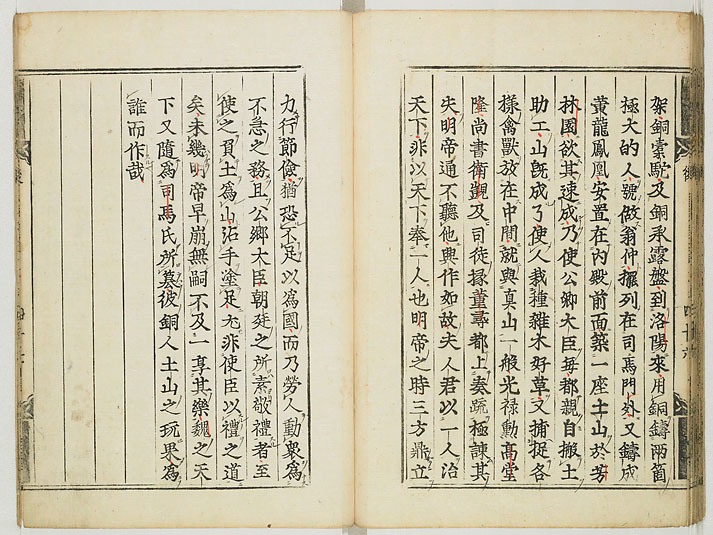 架銅橐駝及銅承露盤到洛陽來用銅鑄兩箇
極大的人號做翁仲擺列在司馬門外又鑄成
黃龍鳳凰安置在內殿前面築一座土山於芳
林園欲其速成乃使公卿大臣每都親自搬土
助工山既成了使人栽種雜木好草又捕捉各
樣禽獸放在中間就與真山一般光祿勳高堂
隆尚書衛覬及司徒掾董尋都上奏疏極諫其
失明帝通不聽他興作如故夫人君以一人治
天下非以天下奉一人也明帝之時三方鼎立
力行節儉猶恐不足以為國而乃勞人動衆為
不急之務且公卿大臣朝廷之所素敬禮者至
使之負土為山沾手塗足尤非使臣以禮之道
矣未幾明帝早崩無嗣不及一享其樂魏之天
下又隨為司馬氏所篡彼銅人土山之玩果為
誰而作哉